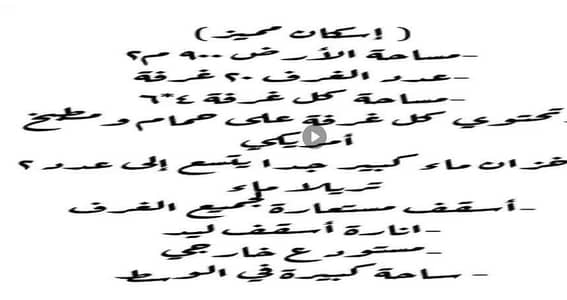 ( إسكان مميز )
-مساحة الأرض ٩٠٠ م٢
-عدد الغرف ٢٠ غرفة
-مساحة كل غرفة ٤*٦
تحتوي كل غرفة على حمام و مطبخ
أمريكي
خزان ماء كبير جدا يتسع إلى عدد ٢
تريلا ماء
-أسقف مستعارة لجميع الغرف
-انارة أسقف ليد
-مستودع خارجي
-ساحة كبيرة في الوسط